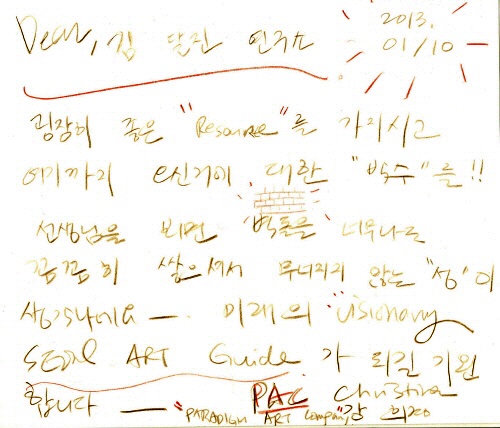 Dear, 김 달진 연구소
2013.
01/10
굉장히 좋은 "Resource"를 가지시고
여기까지 e신거에 대한 "박수"를!!
선생님을 뵈면 벽돌을 너무나도
꼼꼼히 쌓으셔서 무너지지 않는 "성"이
생각나네요 — 미래의 "visionary
SEOUL ART Guide가 되길 기원
합니다 — PAC Christina
"PARADIGM ART Company" 강